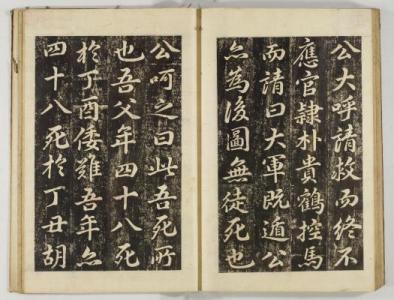 公大呼請救而終不
應官隷朴貴鶴控馬
而請曰大軍既遁公
亦為後圖無徒死也
公呵之曰此吾死所
也吾父年四十八死
於丁酉倭難吾年亦
四十八死於丁丑胡